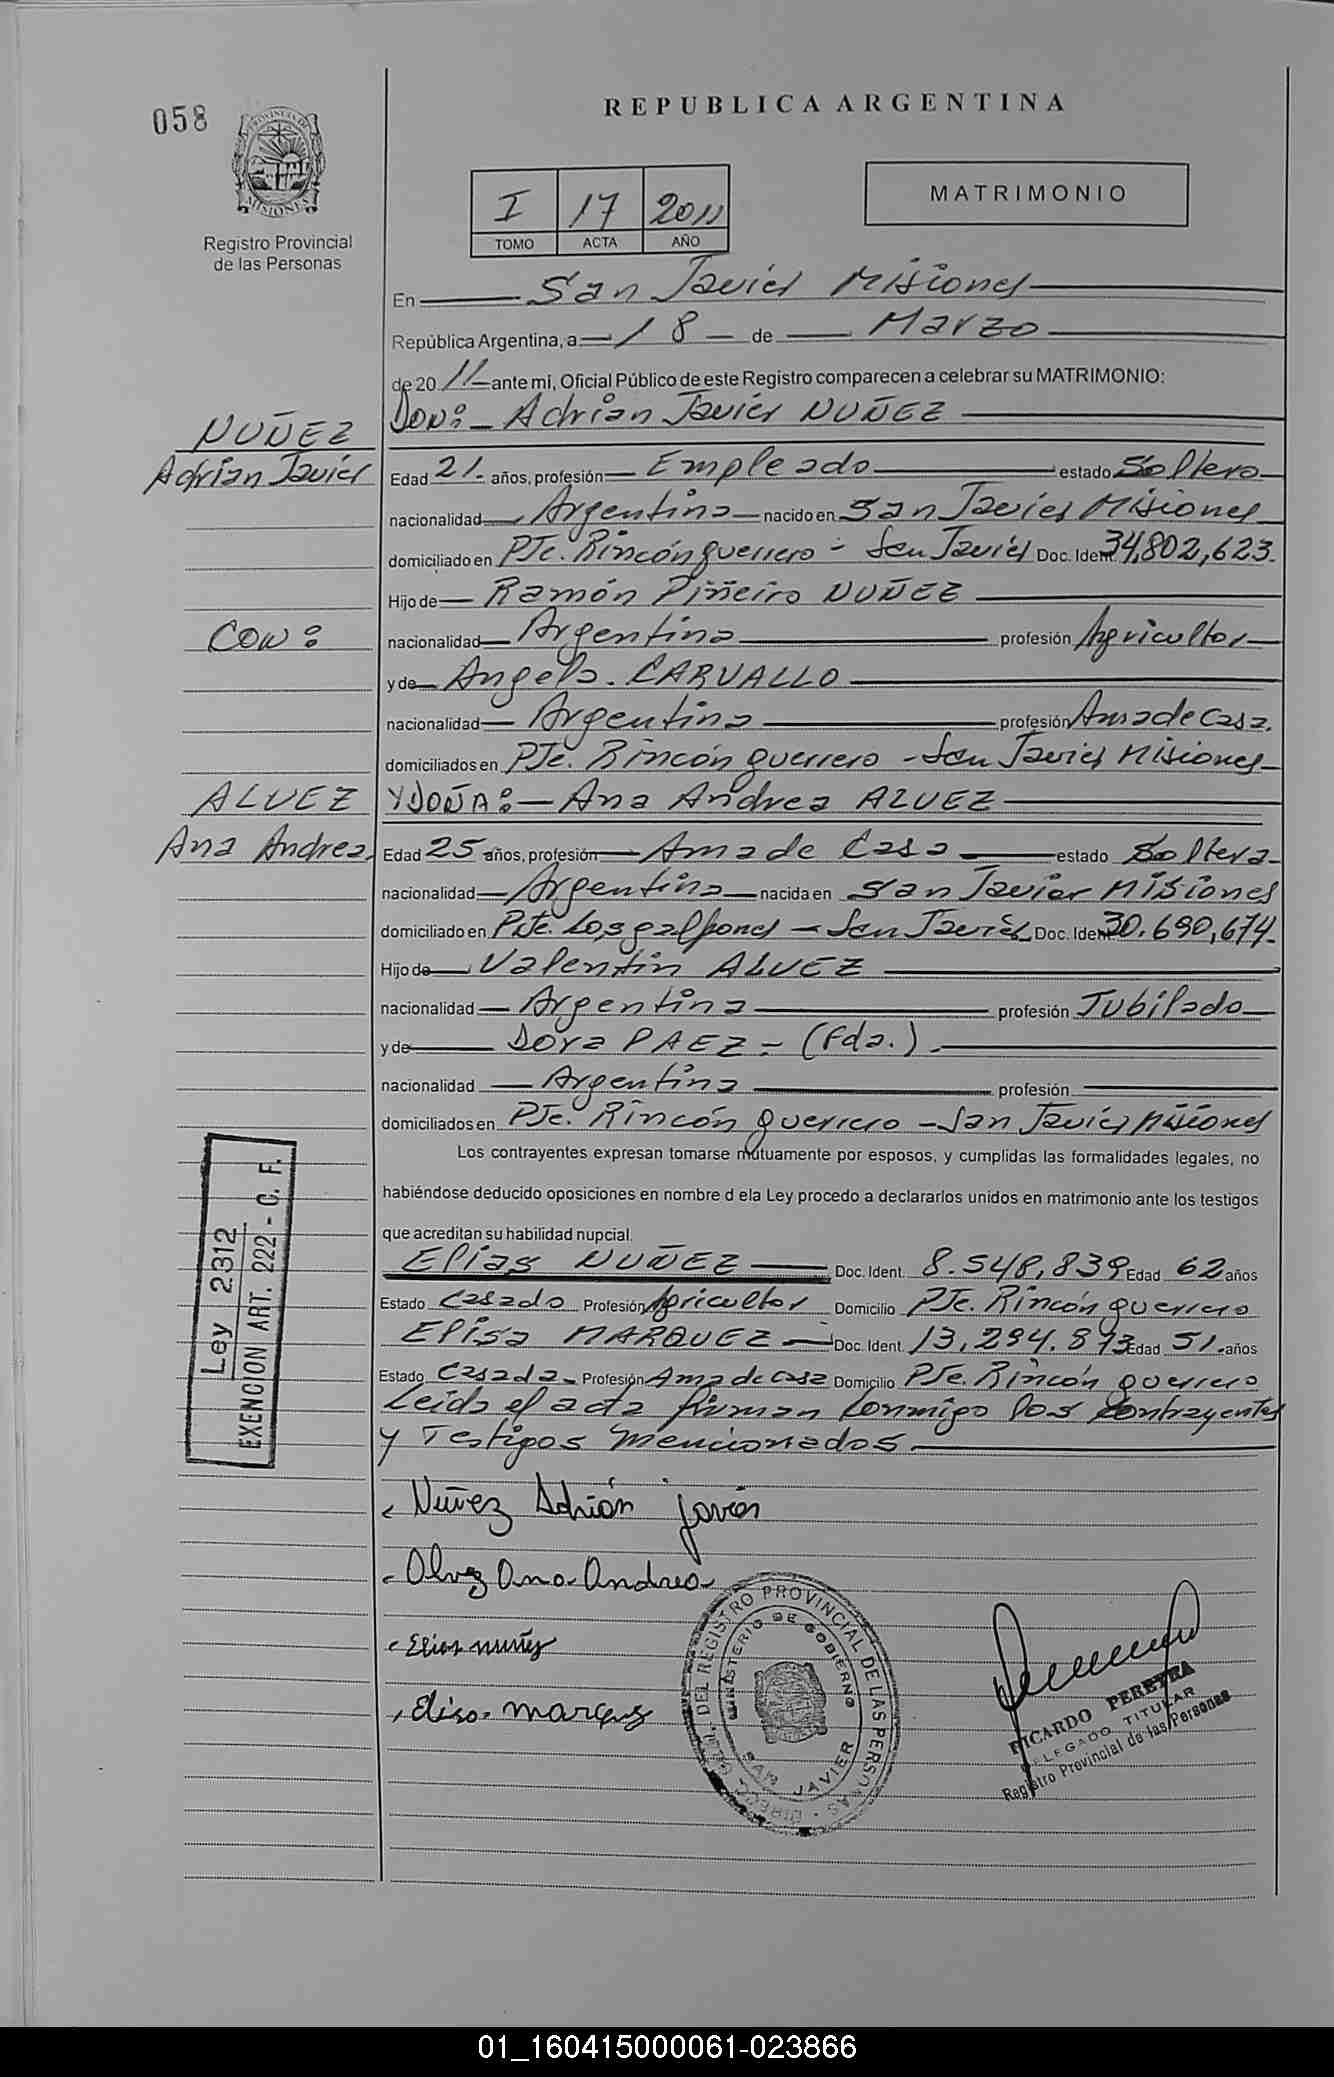 058
PROVINCIA DE
MISIONES
Registro Provincial
de las Personas
REPUBLICA ARGENTINA
I 17 2011
TOMO ACTA AÑO
MATRIMONIO
En San Javier Misiones
República Argentina, a 18 de Marzo
de 20 11 ante mi, Oficial Público de este Registro comparecen a celebrar su MATRIMONIO:
DON: Adrián Javier NUÑEZ
NUÑEZ
Adrián Javier
Edad 21. años, profesión Empleado estado Soltero
nacionalidad Argentina nacido en San Javier Misiones
domiciliado en PJe. Rincón guerrero - San Javier Doc. Ident. 34,802,623.
Hijo de Ramón Piñeiro NUÑEZ
CON:
nacionalidad Argentina profesión Agricultor
y de Angela. CARVALLO
nacionalidad Argentina profesión Ama de Casa.
domiciliados en PJe. Rincón guerrero - San Javier Misiones
ALVEZ
Ana Andrea.
Y DOÑA: Ana Andrea ALVEZ
Edad 25 años, profesión Ama de Casa estado Soltera
nacionalidad Argentina nacida en San Javier Misiones
domiciliado en PJe. Los galpones - San Javier Doc. Ident. 30.690,674.
Hijo de Valentín ALVEZ
nacionalidad Argentina profesión Jubilado
y de Dora PAEZ - (Fda.).
nacionalidad Argentina profesión
domiciliados en PJe. Rincón guerrero - San Javier Misiones
Los contrayentes expresan tomarse mutuamente por esposos, y cumplidas las formalidades legales, no
habiéndose deducido oposiciones en nombre d ela Ley procedo a declararlos unidos en matrimonio ante los testigos
que acreditan su habilidad nupcial.
Elías NUÑEZ Doc. Ident. 8.548,839 Edad 62 años
Estado Casado Profesión Agricultor Domicilio PJe. Rincón guerrero
Elisa MARQUEZ Doc. Ident. 13,294.873 Edad 51. años
Estado Casada Profesión Ama de casa Domicilio PJe. Rincón guerrero
Leída el acta firman conmigo los contrayentes
y Testigos mencionados
Ley 2312
EXENCION ART. 222 - C. F.
Nuñez Adrián javier
Alvez Ana Andrea
Elias nuñez
elisa marquez
DIREC. GRAL. DEL REGISTRO PROVINCIAL DE LAS PERSONAS
MINISTERIO DE GOBIERNO
SAN JAVIER
RICARDO PEREYRA
DELEGADO TITULAR
Registro Provincial de las Personas
01_160415000061-023866